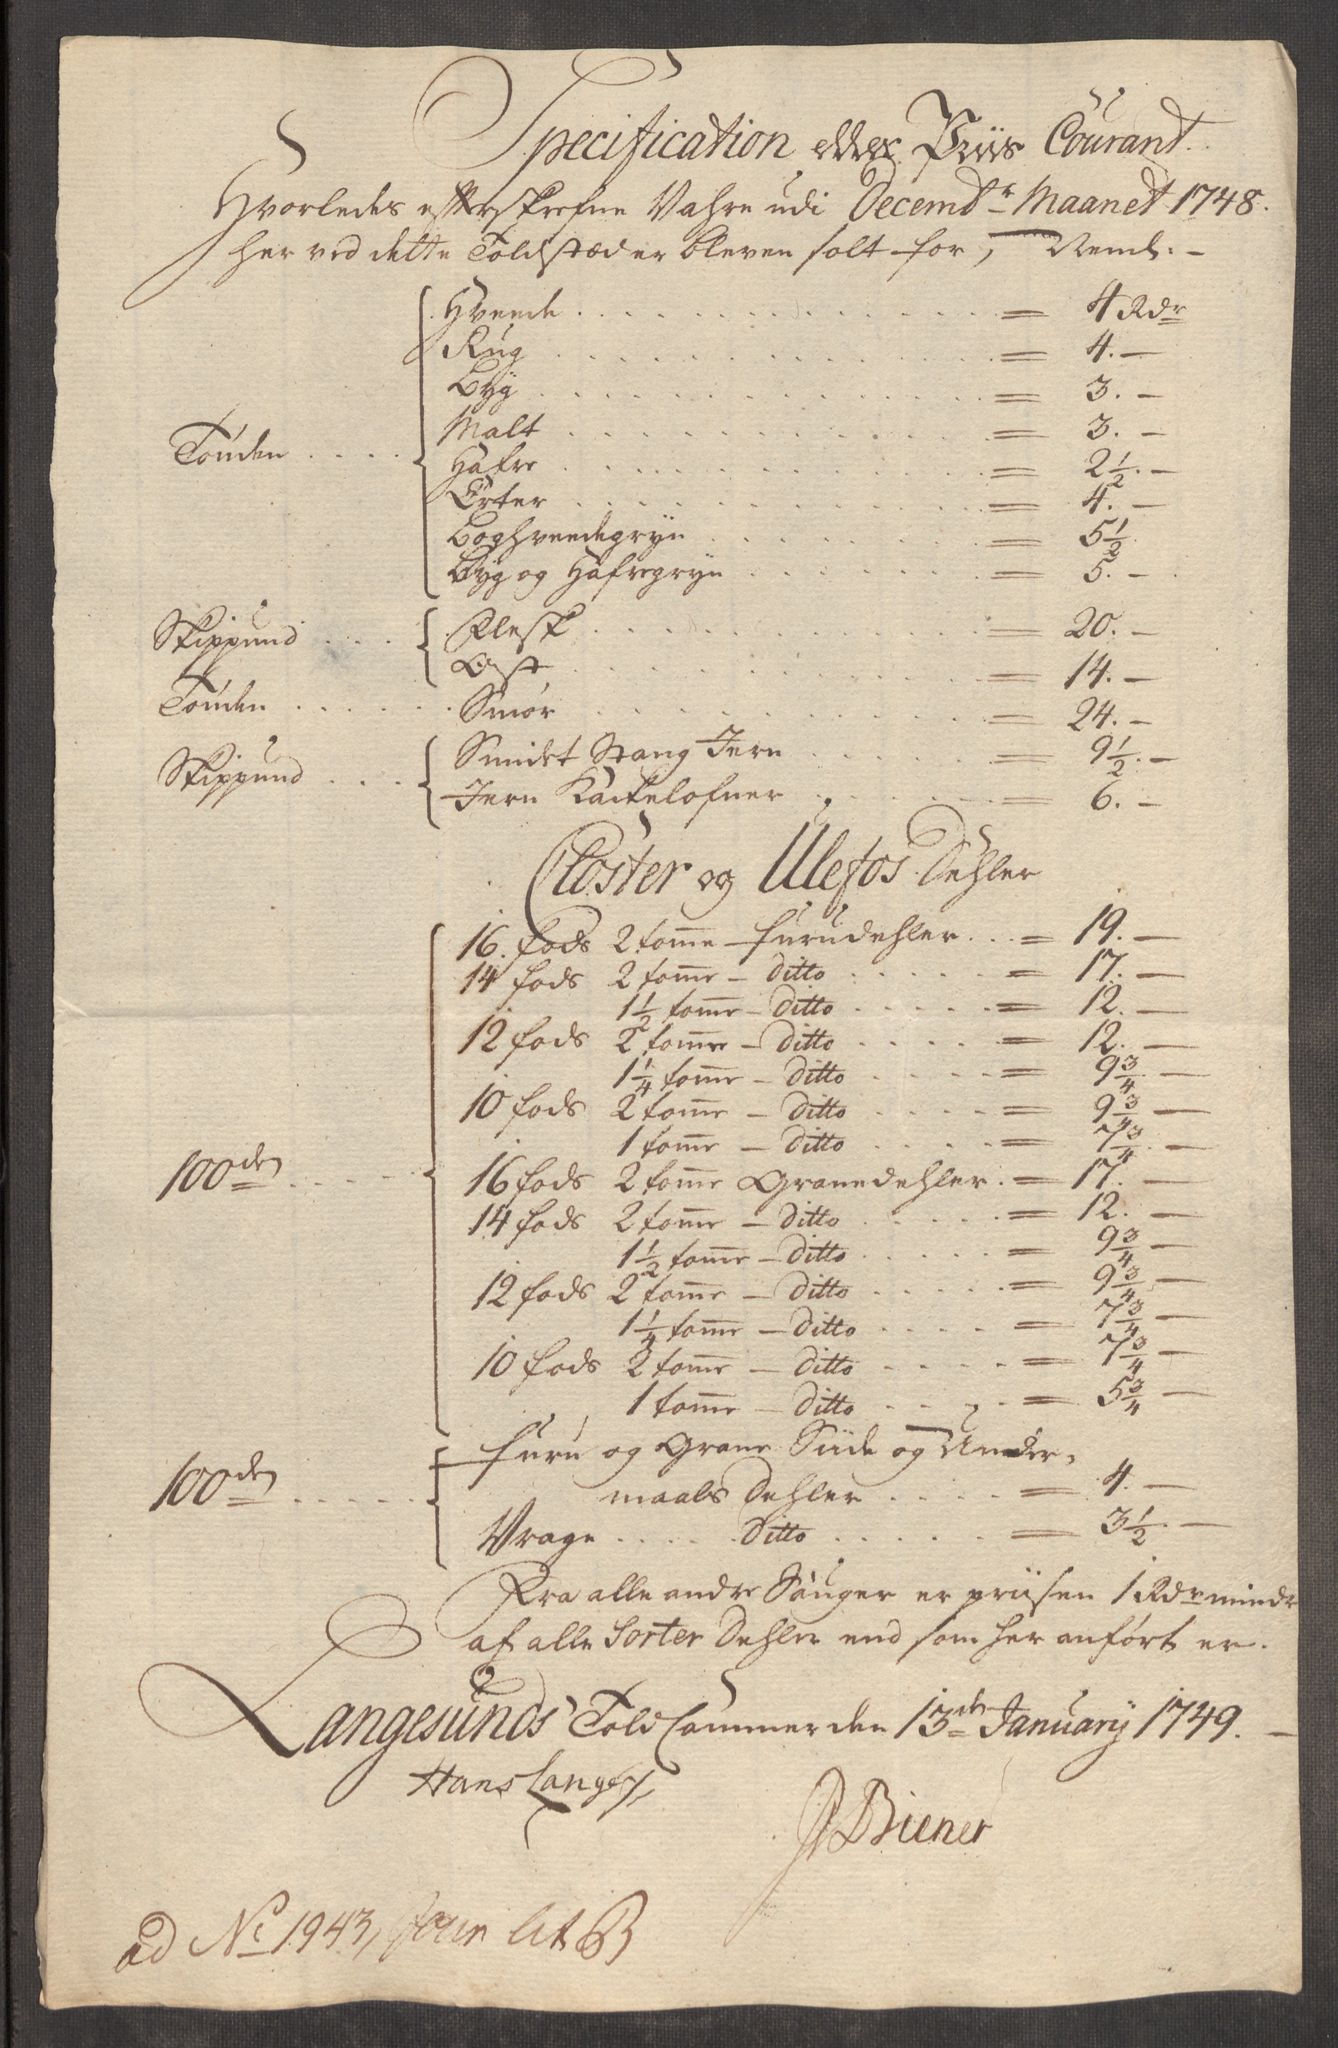 Specification eller Priis Courant
Hvorledes efterskrefne Vahre udi Decembr Maaned 1748.
her ved dette Toldstæd er bleven solt for, Neml. -
Tönden . . . . Hveede . . . = 4 Rdr
Rug . . . = 4. -
Byg . . . = 3. -
Malt . . . = 3. -
Hafre . . . = 2 1/2. -
Erter . . . = 4. -
Boghveedegryn . . . = 5 1/2
Byg og Hafregryn . . . = 5. -
Skippund . . . Flesk . . . = 20. -
Ost . . . = 14. -
Tönden . . . Smör . . . = 24. -
Skippund . . . Smidet Stang Jern . . . = 9 1/2. -
Jern Kackelofner . . . = 6. -
Closter og Ulefos Dehler
100de . . . 16 fods 2 tomme furudehler . . = 19. -
14 fods 2 tomme - ditto . . . = 17. -
1 1/2 tomme - ditto . . . = 12. -
12 fods 2 tomme - ditto . . . = 12. -
1 1/4 tomme - ditto . . . = 9 3/4 -
10 fods 2 tomme - ditto . . . = 9 3/4 -
1 tomme - ditto . . . = 7 3/4 -
16 fods 2 tomme Granedehler . = 17. -
14 fods 2 tomme - ditto . . . = 12. -
1 1/2 tomme - ditto . . . = 9 3/4 -
12 fods 2 tomme - ditto . . . = 9 3/4 -
1 1/4 tomme - ditto . . . = 7 3/4 -
10 fods 2 tomme - ditto . . . = 7 3/4 -
1 tomme - ditto . . . = 5 3/4 -
100de . . . furu og Grane Siide og Under-
maals Dehler . . . = 4. -
Vrage . . . Ditto . . . = 3 1/2. -
Fra alle andre Sauger er priisen 1 Rdr mindre
af alle Sorter Dehler end som her anført er.
Langesunds Told Cammer den 13de January 1749. -
Hans Lange
Biener
ad No 1943, Jour lit B